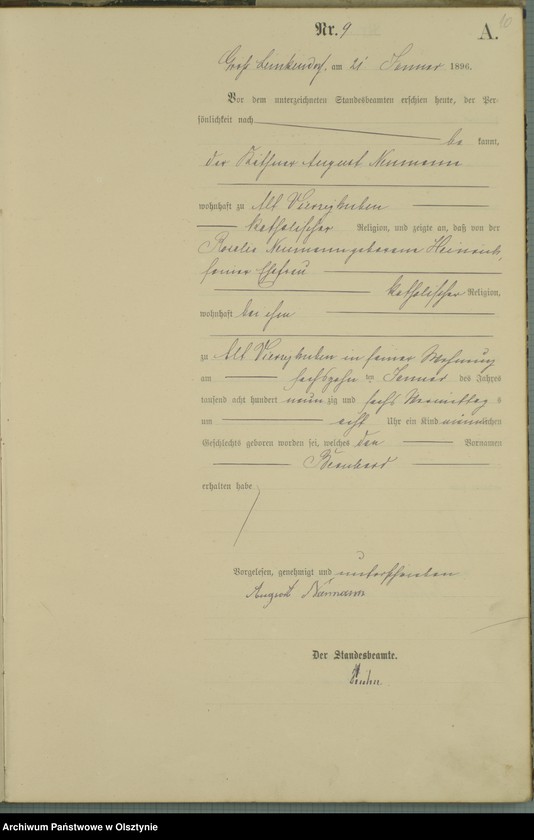 10
Nr. 9
A.
Groß Leinkendorf, am 21 Januar 1896.
Vor dem unterzeichneten Standesbeamten erschien heute, der Per-
sönlichkeit nach
be kannt,
der Käthner August Neumann
wohnhaft zu Alt Vierzighuben
katholischer Religion, und zeigte an, daß von der
Rosalie Neumann geborene Heinrich,
seiner Ehefrau
katholischer Religion,
wohnhaft bei ihm
zu Alt Vierzighuben in seiner Wohnung
am sechszehn ten Januar des Jahres
tausend acht hundert neun zig und sechs Vormittag s
um acht Uhr ein Kind männlichen
Geschlechts geboren worden sei, welches den Vornamen
Bernhard
erhalten habe
Vorgelesen, genehmigt und unterschrieben
August Neumann
Der Standesbeamte.
Archiwum Państwowe w Olsztynie